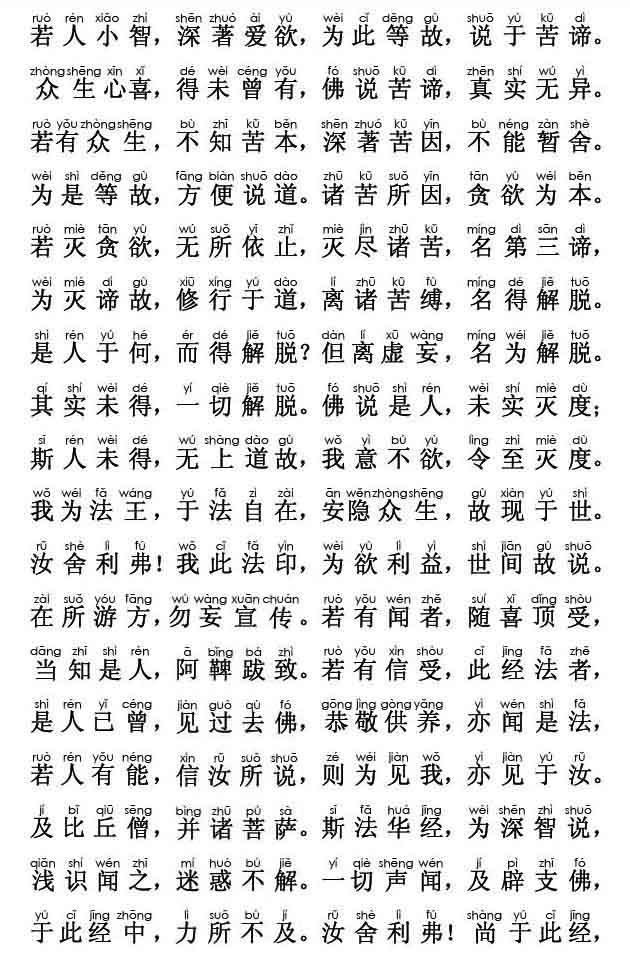 ruò rén xiǎo zhì shēn zhuó ài yù wèi cǐ děng gù shuō yú kǔ dì
若人小智，深著爱欲，为此等故，说于苦谛。
zhòng shēng xīn xǐ dé wèi céng yǒu fó shuō kǔ dì zhēn shí wú yì
众生心喜，得未曾有，佛说苦谛，真实无异。
ruò yǒu zhòng shēng bù zhī kǔ běn shēn zhuó kǔ yīn bù néng zàn shè
若有众生，不知苦本，深著苦因，不能暂舍。
wèi shì děng gù fāng biàn shuō dào zhū kǔ suǒ yīn tān yù wéi běn
为是等故，方便说道。诸苦所因，贪欲为本。
ruò miè tān yù wú suǒ yī zhǐ miè jìn zhū kǔ míng dì sān dì
若灭贪欲，无所依止，灭尽诸苦，名第三谛，
wèi miè dì gù xiū xíng yú dào lí zhū kǔ fù míng dé jiě tuō
为灭谛故，修行于道，离诸苦缚，名得解脱。
shì rén yú hé ér dé jiě tuō dàn lí xū wàng míng wéi jiě tuō
是人于何，而得解脱？但离虚妄，名为解脱。
qí shí wèi dé yí qiè jiě tuō fó shuō shì rén wèi shí miè dù
其实未得，一切解脱。佛说是人，未实灭度；
sī rén wèi dé wú shàng dào gù wǒ yì bú yù lìng zhì miè dù
斯人未得，无上道故，我意不欲，令至灭度。
wǒ wéi fǎ wáng yú fǎ zì zài ān wěn zhòng shēng gù xiàn yú shì
我为法王，于法自在，安隐众生，故现于世。
rǔ shè lì fú wǒ cǐ fǎ yìn wèi yù lì yì shì jiān gù shuō
汝舍利弗！我此法印，为欲利益，世间故说。
zài suǒ yóu fāng wù wàng xuān chuán ruò yǒu wén zhě suí xǐ dǐng shòu
在所游方，勿妄宣传。若有闻者，随喜顶受，
dāng zhī shì rén ā bǐng bá zhì ruò yǒu xìn shòu cǐ jīng fǎ zhě
当知是人，阿鞞跋致。若有信受，此经法者，
shì rén yǐ céng jiàn guò qù fó gōng jìng gòng yǎng yì wén shì fǎ
是人已曾，见过去佛，恭敬供养，亦闻是法，
ruò rén yǒu néng xìn rǔ suǒ shuō zé wéi jiàn wǒ yì jiàn yú rǔ
若人有能，信汝所说，则为见我，亦见于汝。
jí bǐ qiū sēng bìng zhū pú sà sī fǎ huá jīng wèi shēn zhì shuō
及比丘僧，并诸菩萨。斯法华经，为深智说，
qiǎn shí wén zhī mí huò bù jiě yí qiè shēng wén jí pì zhī fó
浅识闻之，迷惑不解。一切声闻，及辟支佛，
yú cǐ jīng zhōng lì suǒ bù jí rǔ shè lì fú shàng yú cǐ jīng
于此经中，力所不及。汝舍利弗！尚于此经，